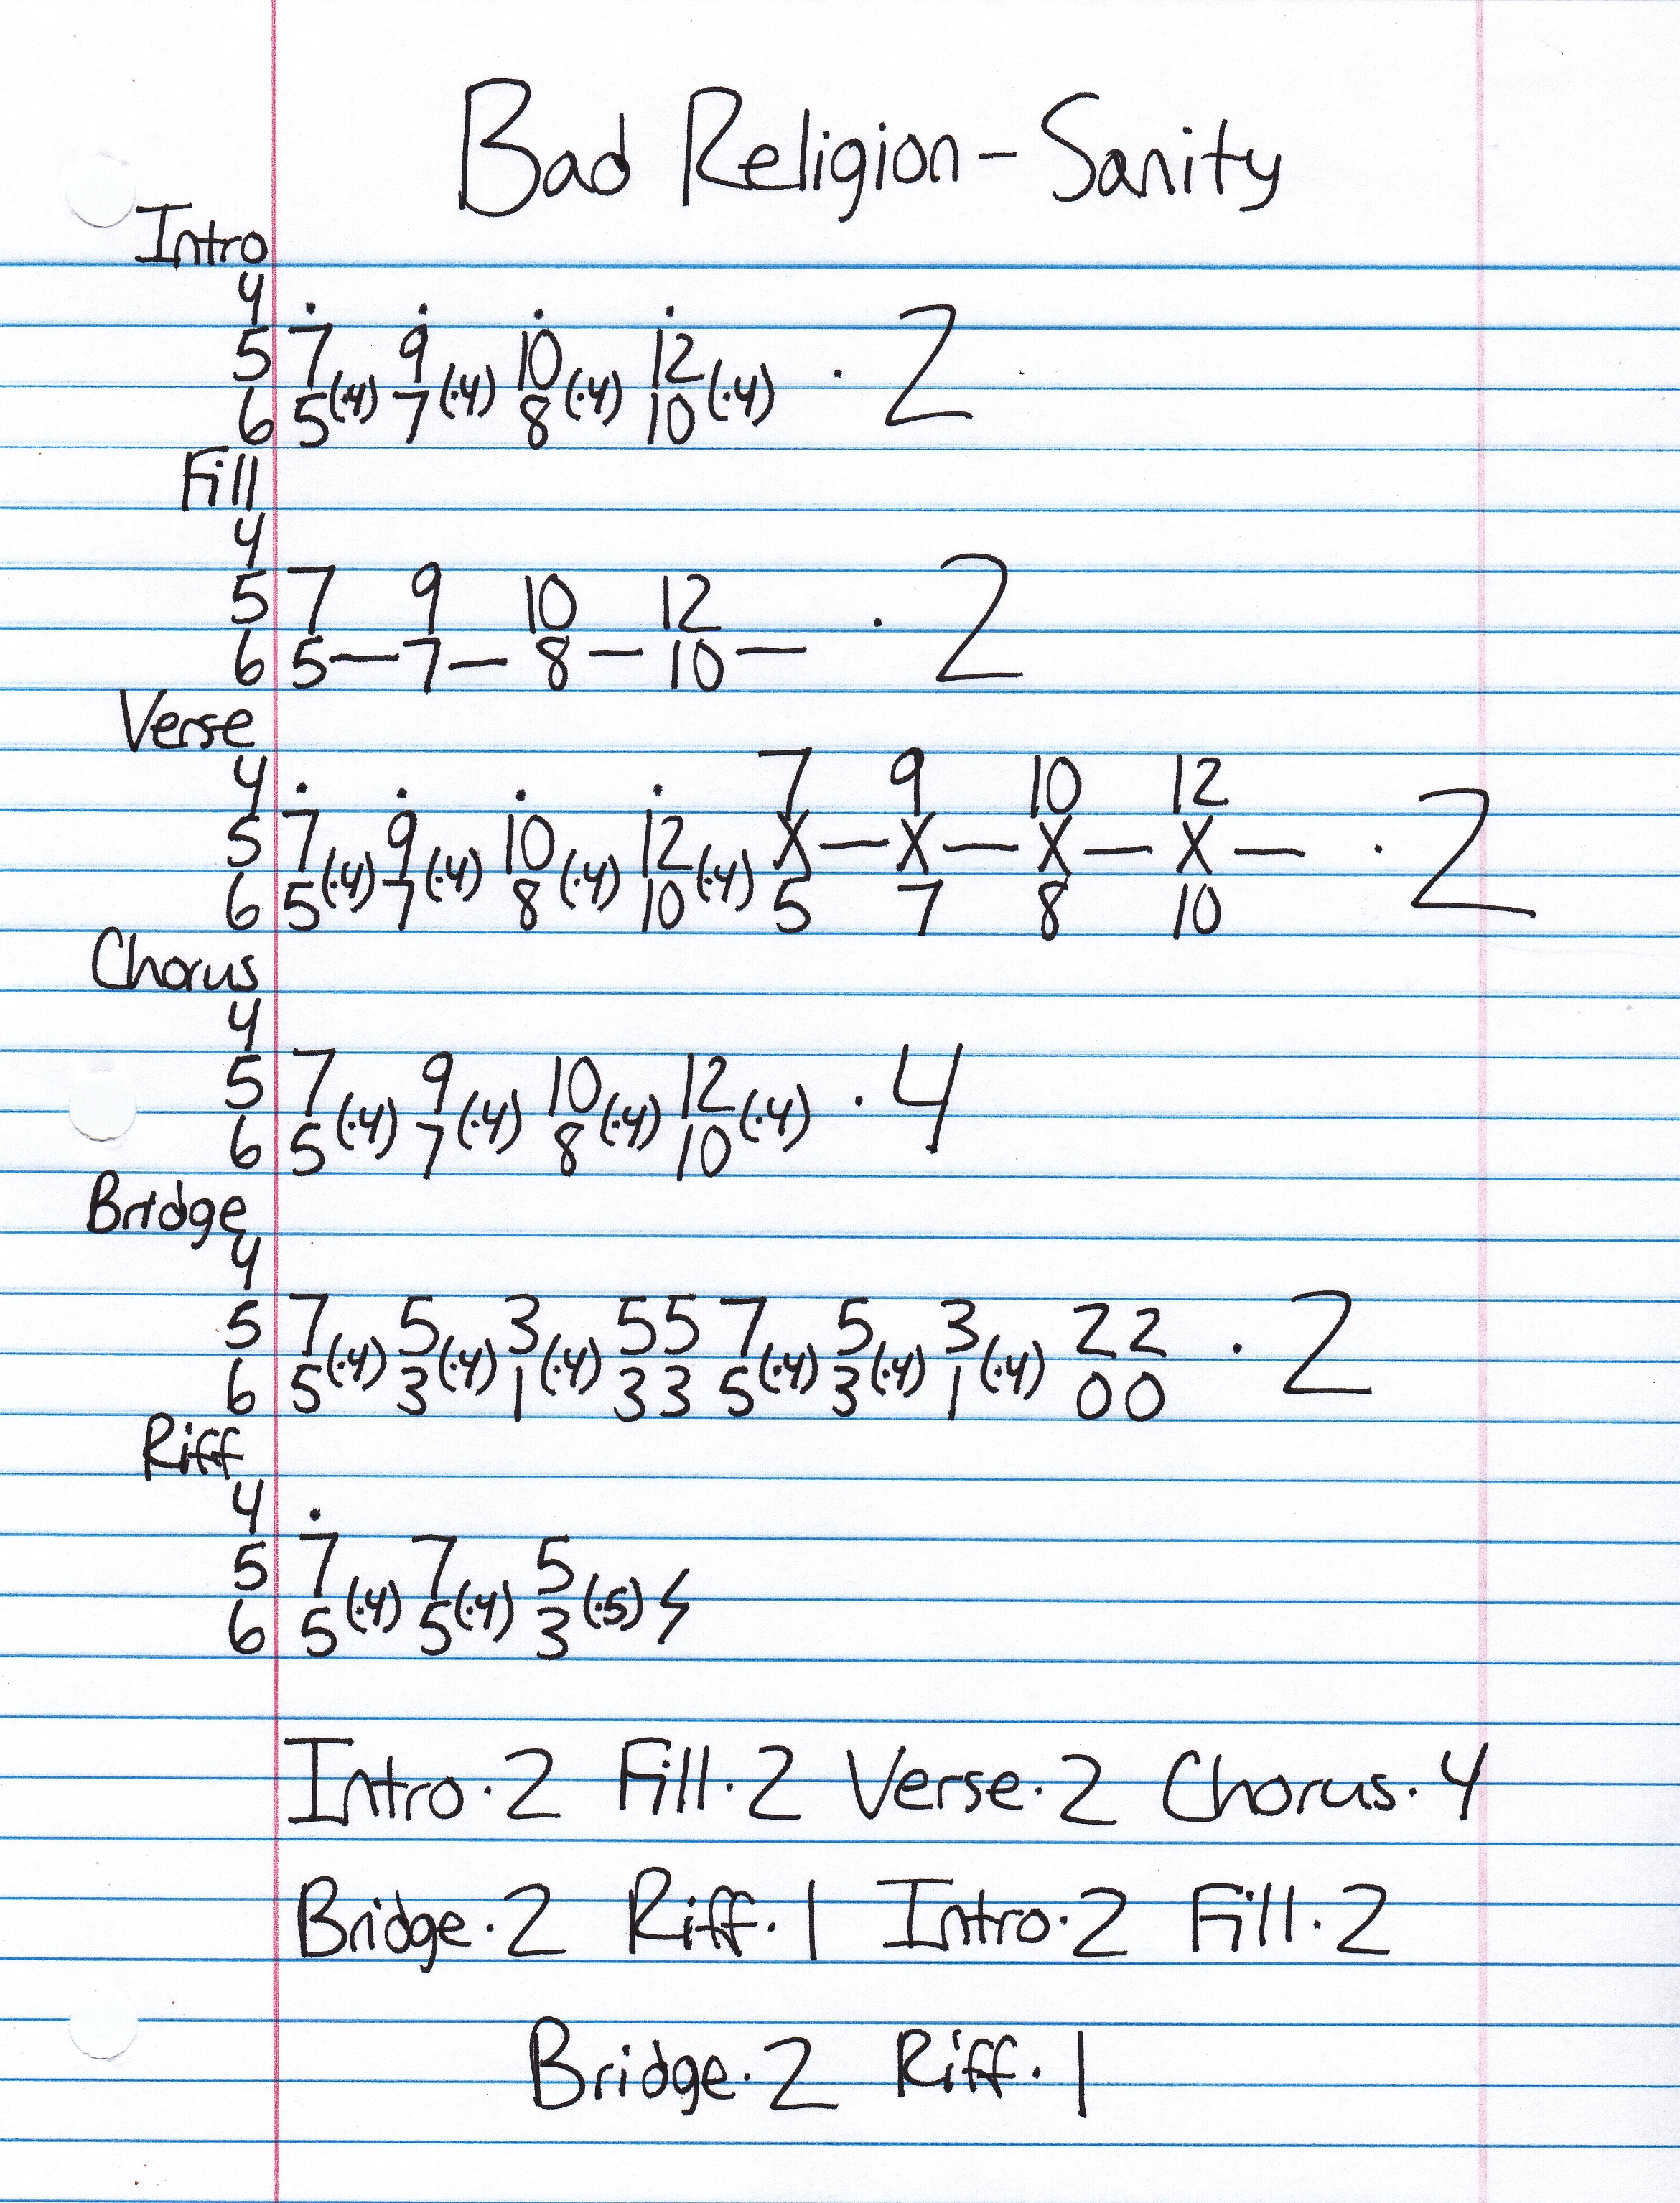 Bad Religion - Sanity
Intro
4 . . . .
5 7 9 10 12
6 5(·4) 7(·4) 8(·4) 10(·4) · 2
Fill
4
5 7 9 10 12
6 5— 7— 8— 10— · 2
Verse
4 . . . . 7 9 10 12
5 7 9 10 12 X— X— X— X—
6 5(·4) 7(·4) 8(·4) 10(·4) 5 7 8 10 · 2
Chorus
4
5 7 9 10 12
6 5(·4) 7(·4) 8(·4) 10(·4) · 4
Bridge
4
5 7 5 3 5 5 7 5 3 2 2
6 5(·4) 3(·4) 1(·4) 3 3 5(·4) 3(·4) 1(·4) 0 0 · 2
Riff
4 .
5 7 7 5
6 5(·4) 5(·4) 3(·5)
Intro·2 Fill·2 Verse·2 Chorus·4
Bridge·2 Riff·1 Intro·2 Fill·2
Bridge·2 Riff·1